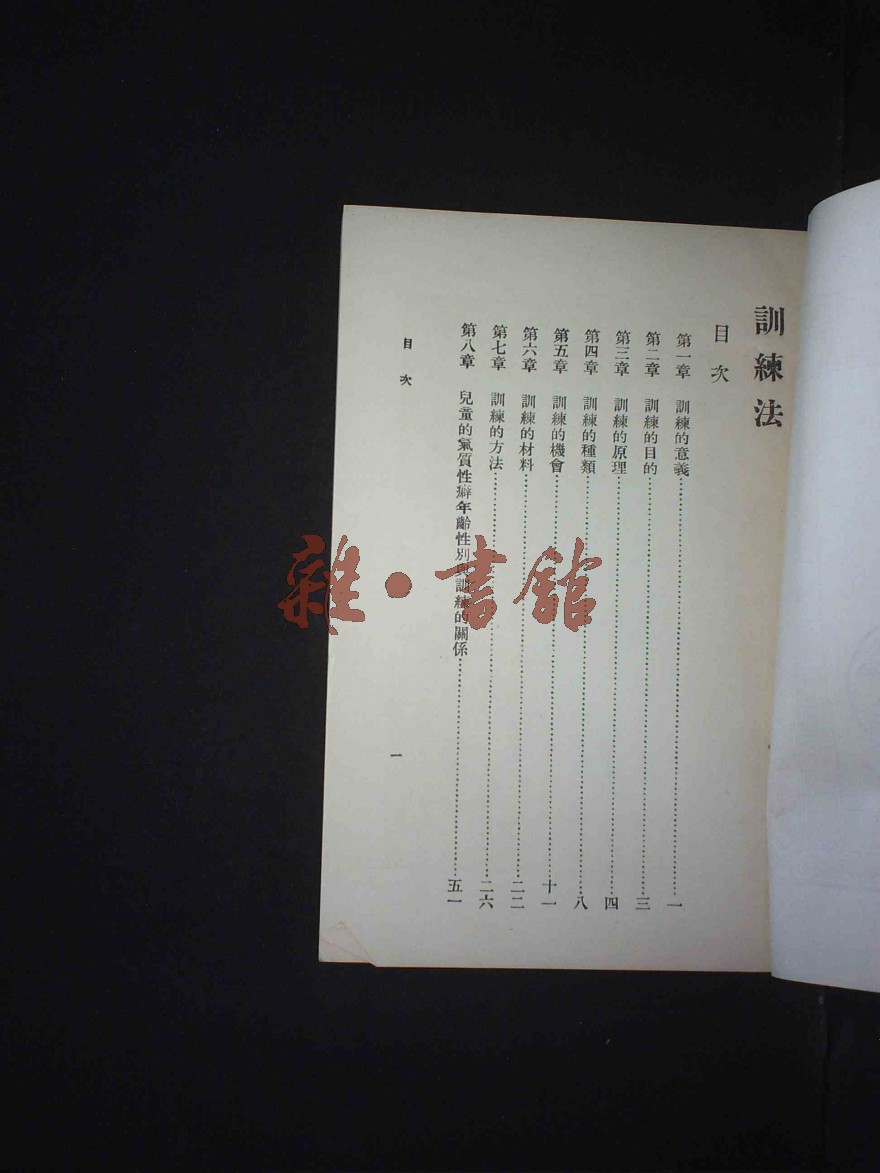 訓練法
目次
第一章 訓練的意義……………一
第二章 訓練的目的……………三
第三章 訓練的原理……………四
第四章 訓練的種類……………八
第五章 訓練的機會……………十一
第六章 訓練的材料……………二二
第七章 訓練的方法……………二六
第八章 兒童的氣質性癖年齡性別與訓練的關係……………五一
目次
一
雜·書館